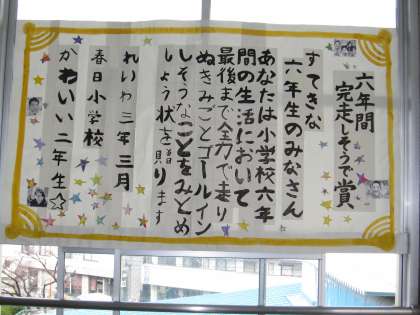 六年間
完走しそうで賞、
すてきな
六年生のみなさん
あなたは小学校六年
間の生活において
最後まで全力で走り
ぬきみごとゴールイン
しそうなことをみとめ
しょう状を贈ります
れいわ三年三月
春日小学校
かわいい二年生☆